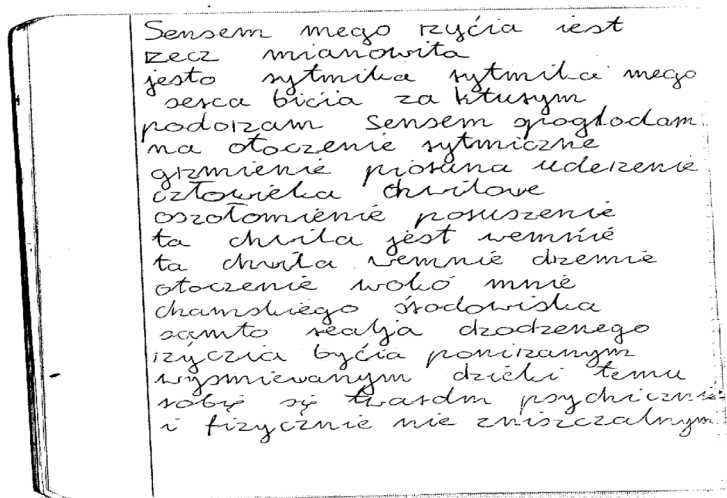 Sensem mego rzyćia iest
rzecz mianowita
jesto rytmika rytmika mego
serca bićia za kturym
podorzam sensem spoglodam
na otoczenie rytmiczne
grzmienie pioruna uderzenie
człowieka chwilowe
oszołomienie poruszenie
ta chwila jest wemńié
ta chwila wemnié drzemie
otoczenie wokó mnié
chamskiego środowiska
samto realja dzodzenego
rzyczia byćia ponirzanym
wyśmiewanym dzieki temu
robię się twardm psychicznie
i fizycznie nie zniszczalnym